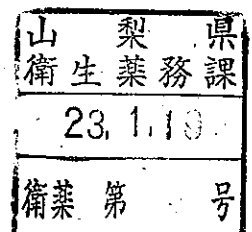 山梨県
衛生薬務課
23.1.19
衛薬第 号